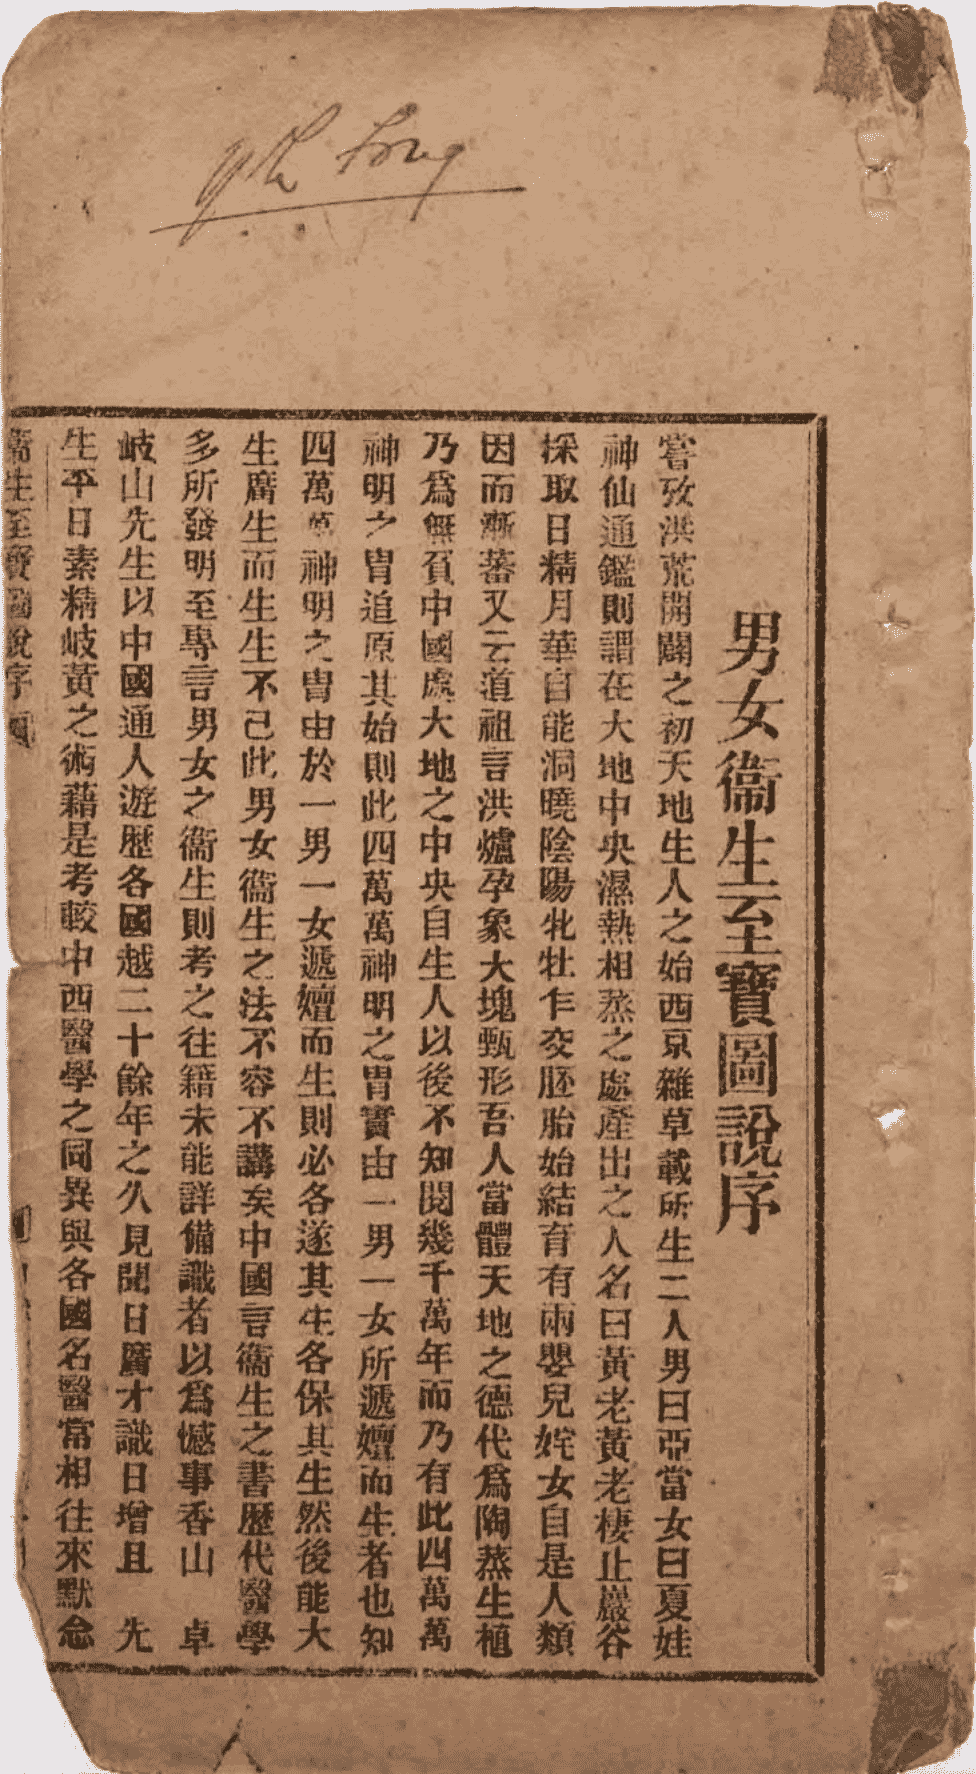 Y K Fong
男女衞生至寶圖說序
嘗攷洪荒開闢之初天地生人之始西京雜草載所生二人男曰亞當女曰夏娃
神仙通鑑則謂在大地中央濕熱相蒸之處產出之人名曰黃老黃老棲止巖谷
採取日精月華自能洞曉陰陽牝牡乍交胚胎始結育有兩嬰兒姹女自是人類
因而漸蕃又云道祖言洪爐孕象大塊甄形吾人當體天地之德代爲陶蒸生植
乃爲無負中國處大地之中央自生人以後不知閱幾千萬年而乃有此四萬萬
神明之冑追原其始則此四萬萬神明之冑實由一男一女所遞嬗而生者也知
四萬萬神明之冑由於一男一女遞嬗而生則必各遂其生各保其生然後能大
生廣生而生生不已此男女衞生之法不容不講矣中國言衞生之書歷代醫學
多所發明至專言男女之衞生則考之往籍未能詳備識者以爲憾事香山　卓
岐山先生以中國通人遊歷各國越二十餘年之久見聞日廣才識日增且　先
生平日素精岐黃之術藉是考較中西醫學之同異與各國名醫常相往來默念
衞生至寶圖說序